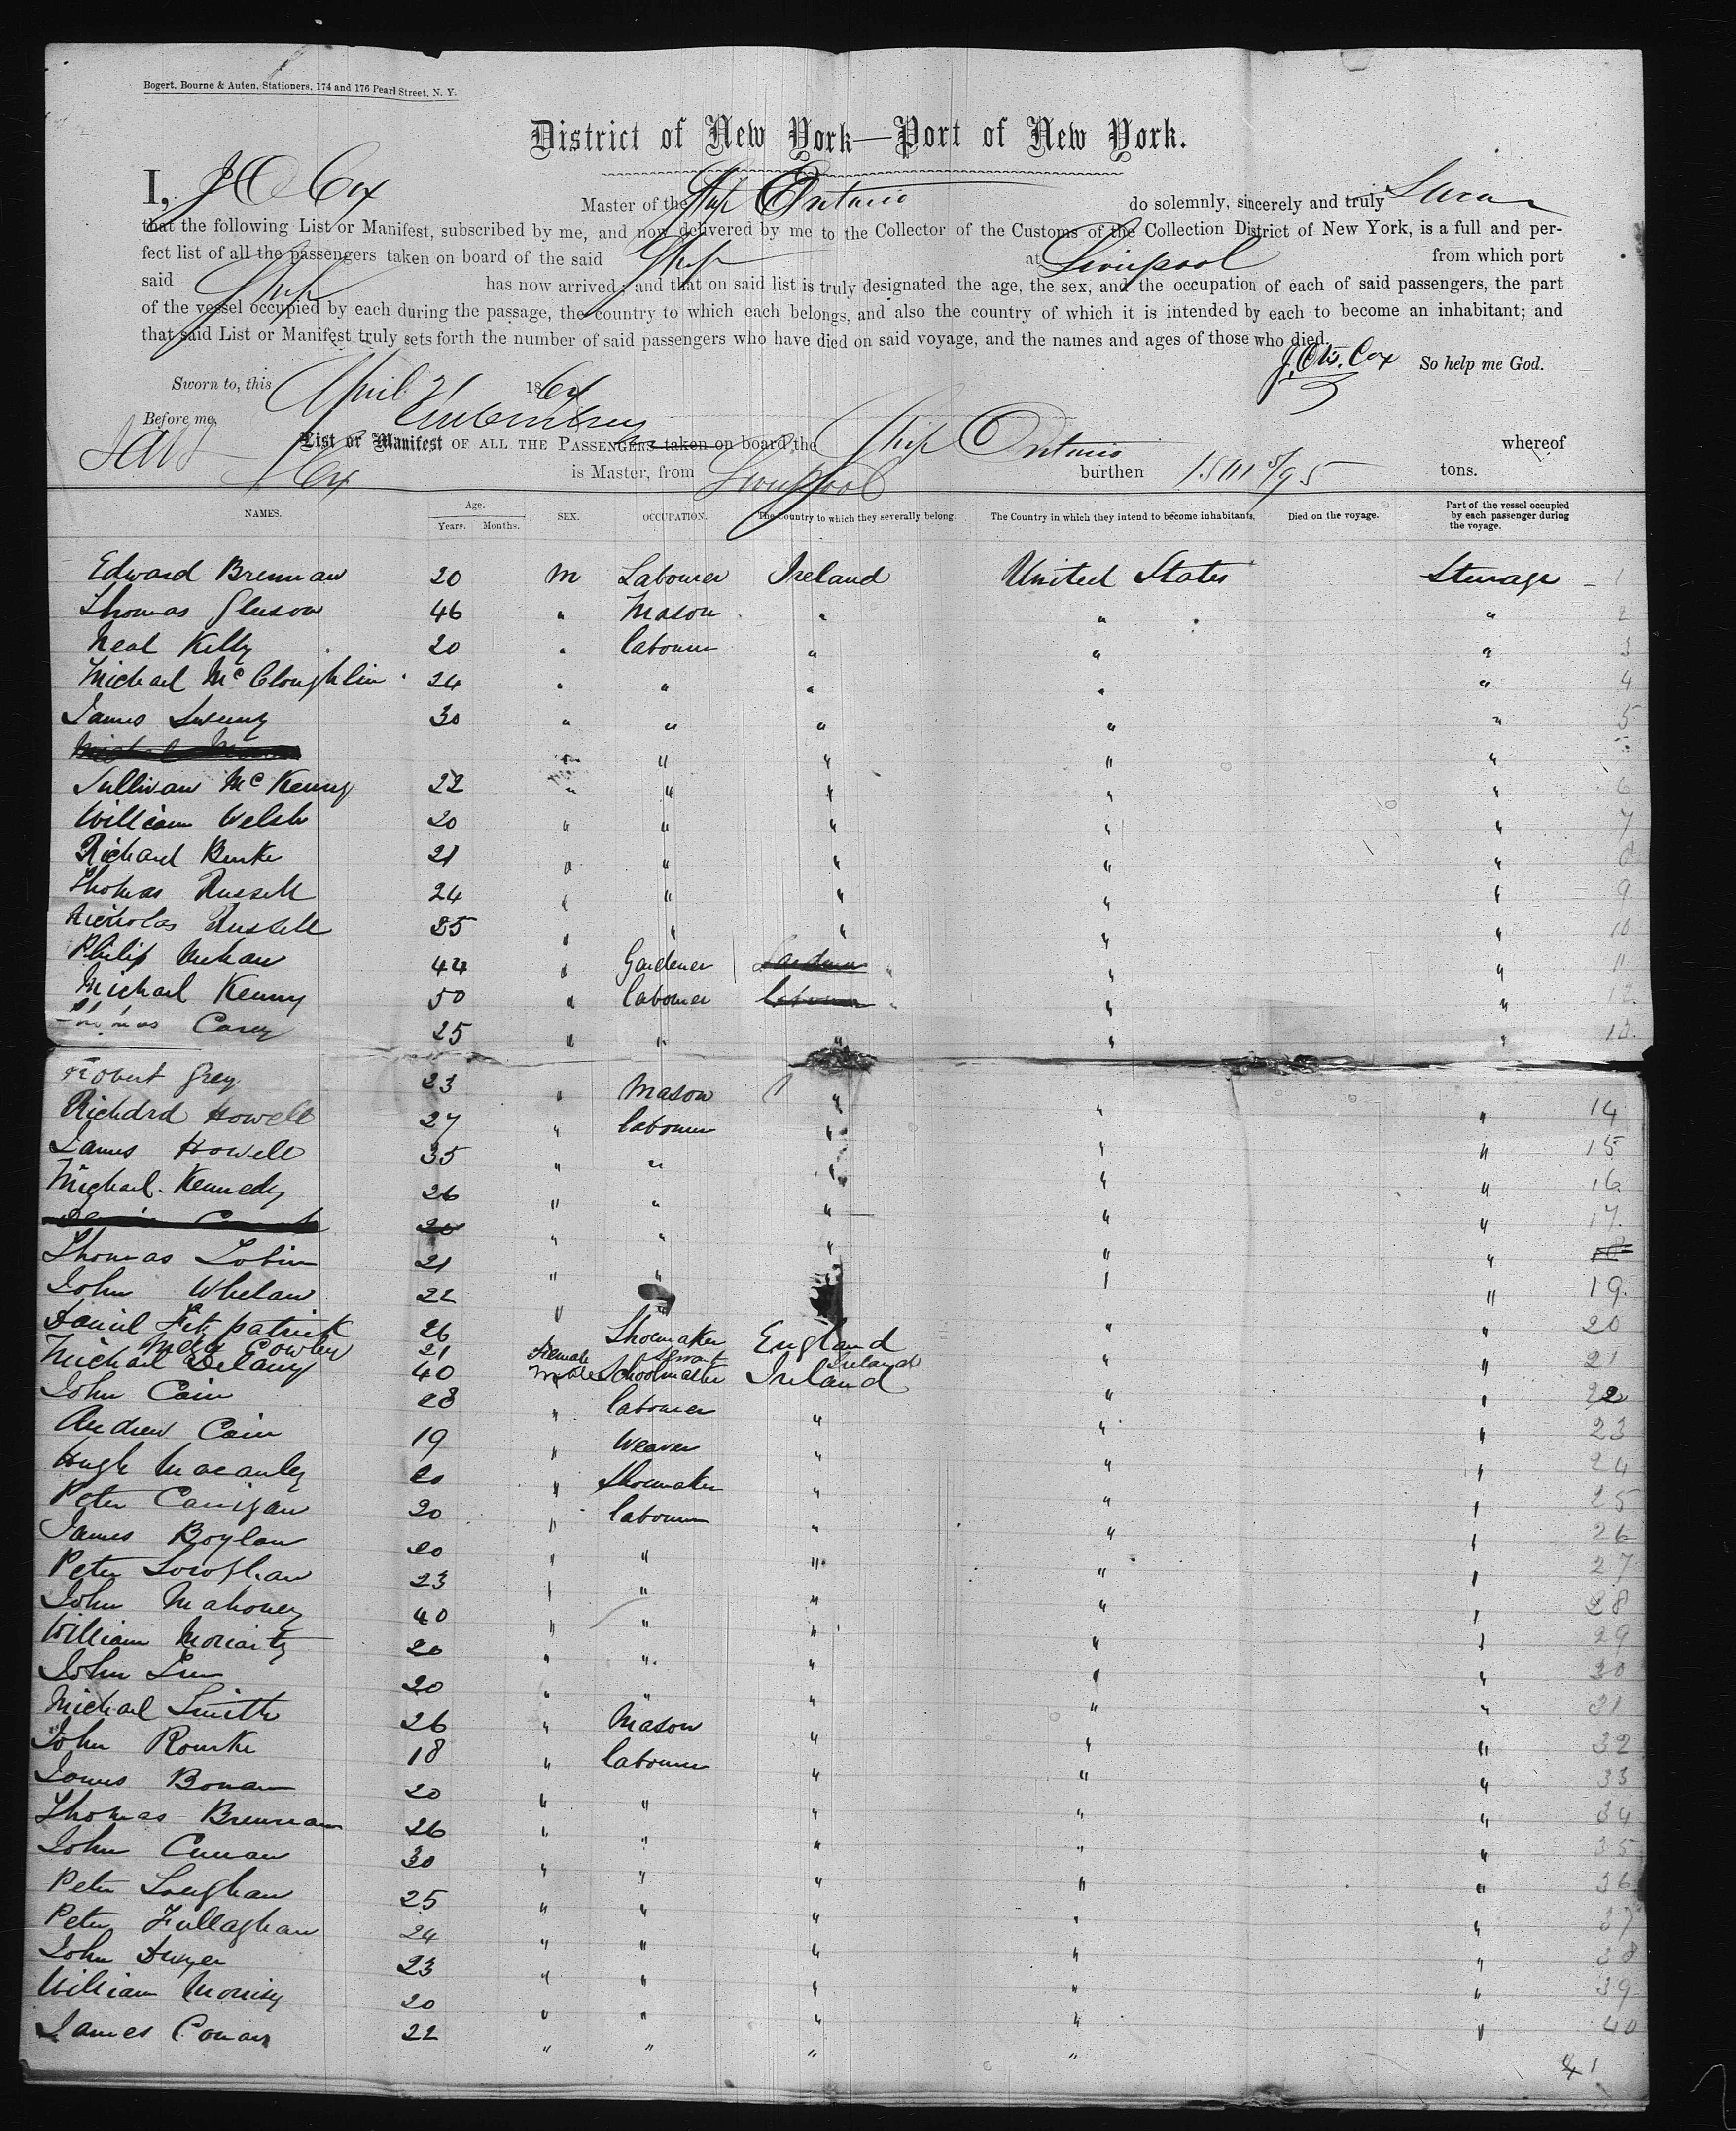 Bogert, Bourne & Auten, Stationers, 174 and 176 Pearl Street, N. Y.
District of New York—Port of New York.
I, J O Cox Master of the Ship Ontario do solemnly, sincerely and truly Swear
that the following List or Manifest, subscribed by me, and now delivered by me to the Collector of the Customs of the Collection District of New York, is a full and per-
fect list of all the passengers taken on board of the said Ship at Liverpool from which port
said Ship has now arrived; and that on said list is truly designated the age, the sex, and the occupation of each of said passengers, the part
of the vessel occupied by each during the passage, the country to which each belongs, and also the country of which it is intended by each to become an inhabitant; and
that said List or Manifest truly sets forth the number of said passengers who have died on said voyage, and the names and ages of those who died.
J. Otis. Cox So help me God.
Sworn to, this April 21 1864
Before me,
List or Manifest OF ALL THE PASSENGERS taken on board the Ship Ontario whereof
Cox is Master, from Liverpool burthen 1501 5/95 tons.
NAMES. Age. Years. Months. SEX. OCCUPATION. The Country to which they severally belong. The Country in which they intend to become inhabitants. Died on the voyage. Part of the vessel occupied by each passenger during the voyage.
Edward Brennan 20 M Labourer Ireland United States Steerage 1
Thomas Gleeson 46 " Mason " " " 2
Neal Kelly 20 " labourer " " " 3
Michael McCloughlin 24 " " " " " 4
James Sweeny 30 " " " " " 5
" " " " "
Sullivan McKenny 22 " " " " " 6
William Welsh 20 " " " " " 7
Richard Burke 21 " " " " " 8
Thomas Russell 24 " " " " " 9
Nicholas Russell 25 " " " " " 10
Philip Mehan 44 " Gardener Gardener " " " 11
Michael Kenny 50 " labourer labourer " " " 12.
Thomas Carey 25 " " " " " 13.
Robert Grey 23 " Mason " " " 14
Richard Howell 27 " labourer " " " 15
James Howell 35 " " " " " 16.
Michael Kennedy 26 " " " " " 17.
20 " " " " " 18
Thomas Tobin 21 " " " " " 19.
John Whelan 22 " " " 20
Daniel Fitzpatrick 26 Shoemaker England " " 21
Mary Cowley 21 Female Servant Ireland
Michael Delany 40 Male Schoolmaster Ireland " " 22
John Cain 28 " labourer " " " 23
Andrew Cain 19 " Weaver " " " 24
Hugh Macauley 20 " Shoemaker " " " 25
Peter Carrigan 20 " labourer " " " 26
James Boylan 20 " " " " " 27
Peter 23 " " " " " 28
John Mahoney 40 " " " " " 29
William Moriarty 20 " " " " " 30
John 20 " " " " " 31
Michael Smith 26 " Mason " " " 32
John Rourke 18 " labourer " " " 33
James 20 " " " " " 34
Thomas Brennan 26 " " " " " 35
John Curran 30 " " " " " 36
Peter Loughan 25 " " " " " 37
Peter Fullaghan 24 " " " " " 38
John Dwyer 23 " " " " " 39
William Morrisy 20 " " " " " 40
James Conan 22 " " " " 41